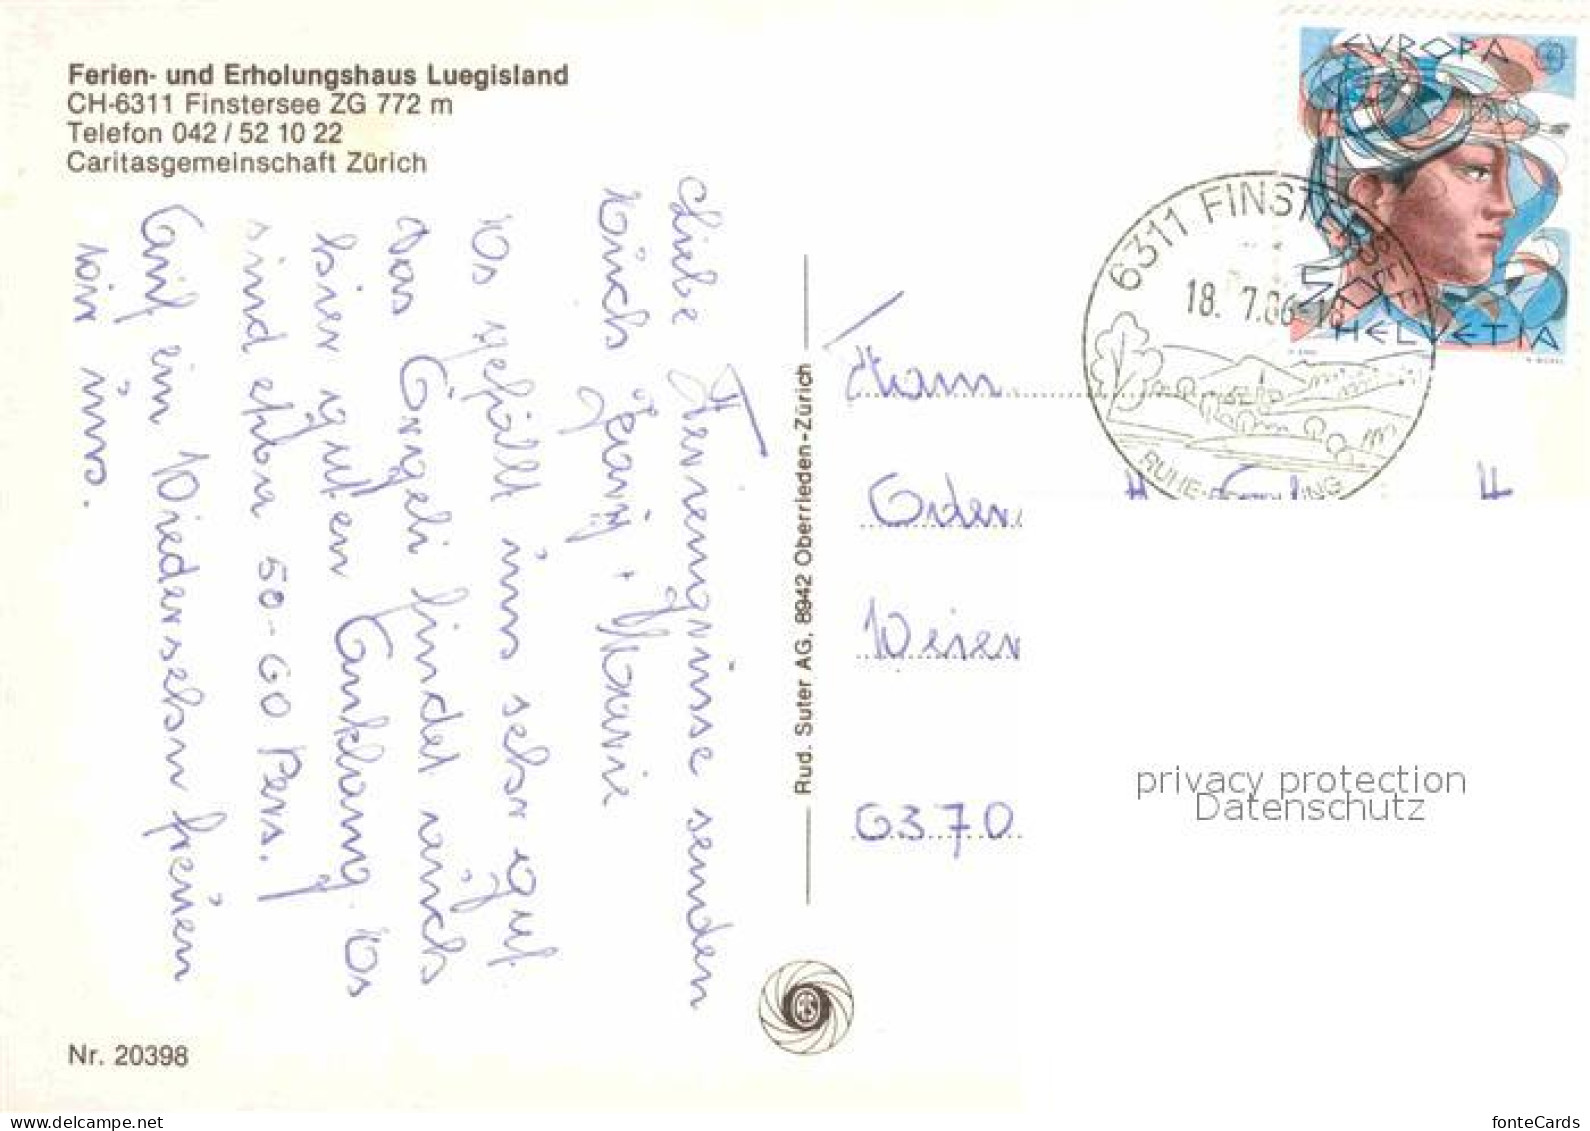 Ferien- und Erholungshaus Luegisland
CH-6311 Finstersee ZG 772 m
Telefon 042 / 52 10 22
Caritasgemeinschaft Zürich
Liebe Feriengrüsse senden
Euch Jeany + Marie
Es gefällt uns sehr gut
Das Örgeli findet auch
hier guten Anklang. Es
sind etwa 50-60 Pers.
Auf ein Wiedersehn freuen
wir uns.
Nr. 20398
Rud. Suter AG, 8942 Oberrieden-Zürich
EVROPA
HELVETIA
6311 FINSTERSEE
18. 7.86-18
RUHE
Fam.
Oder
6370
privacy protection
Datenschutz
www.delcampe.net
fonteCards